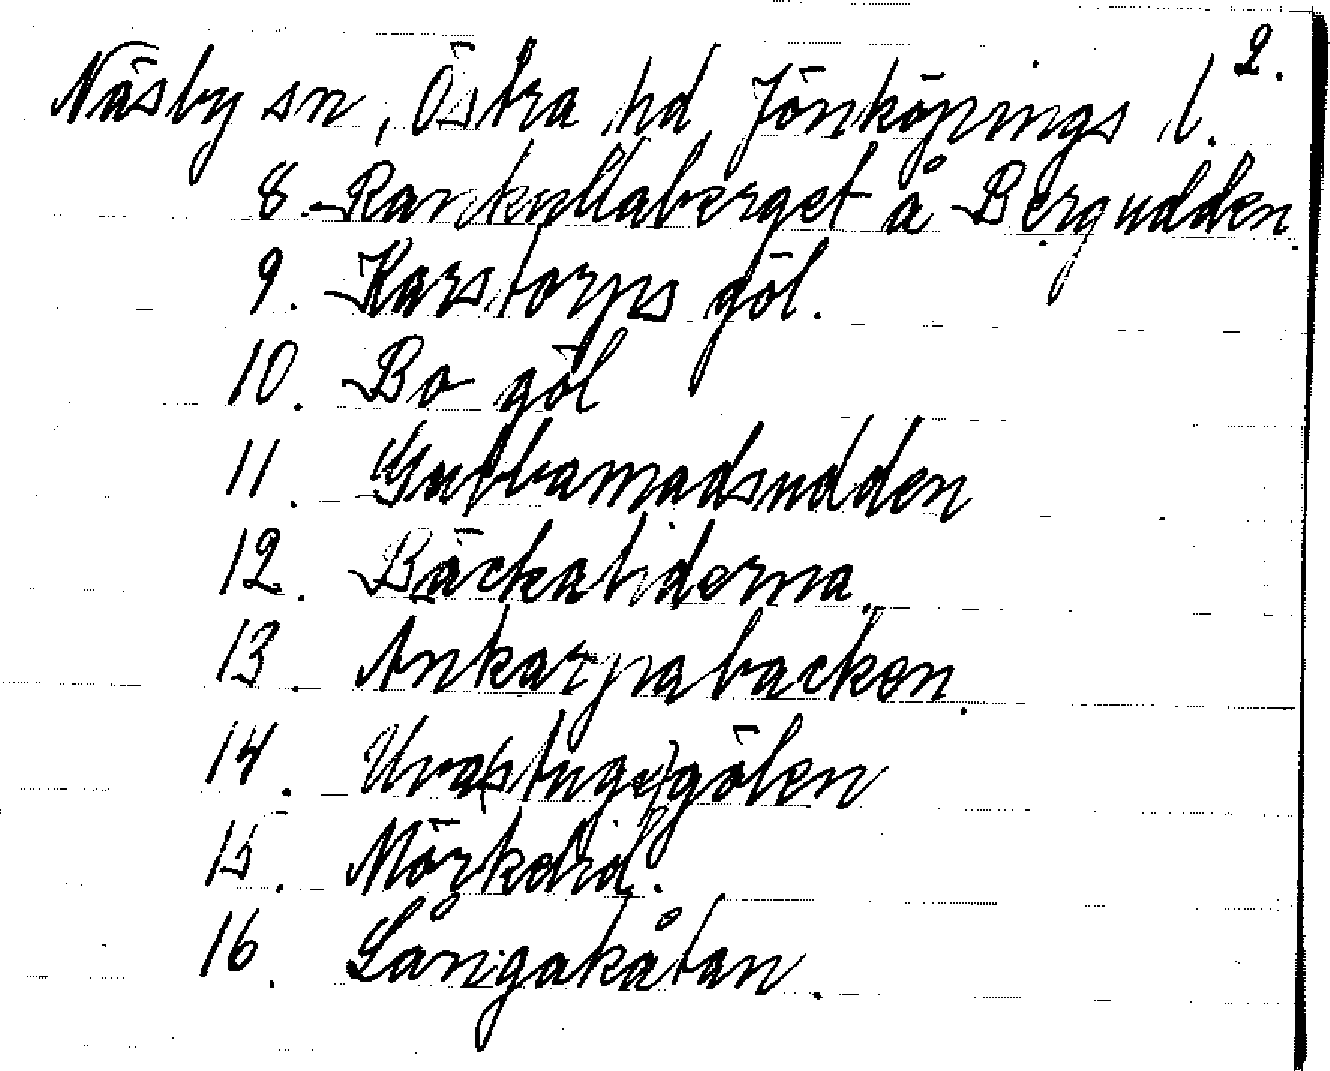 2.
Näsby sn, Östra hd, Jönköpings l.
8. Rankullaberget å Bergudden.
9. Karstorps göl.
10. Bo göl
11. Gubbamadsudden
12. Bäckaliderna.
13. Ankarpabacken.
14. Uva(stuge)gölen
15. Mörkelid.
16. Långakåtan.